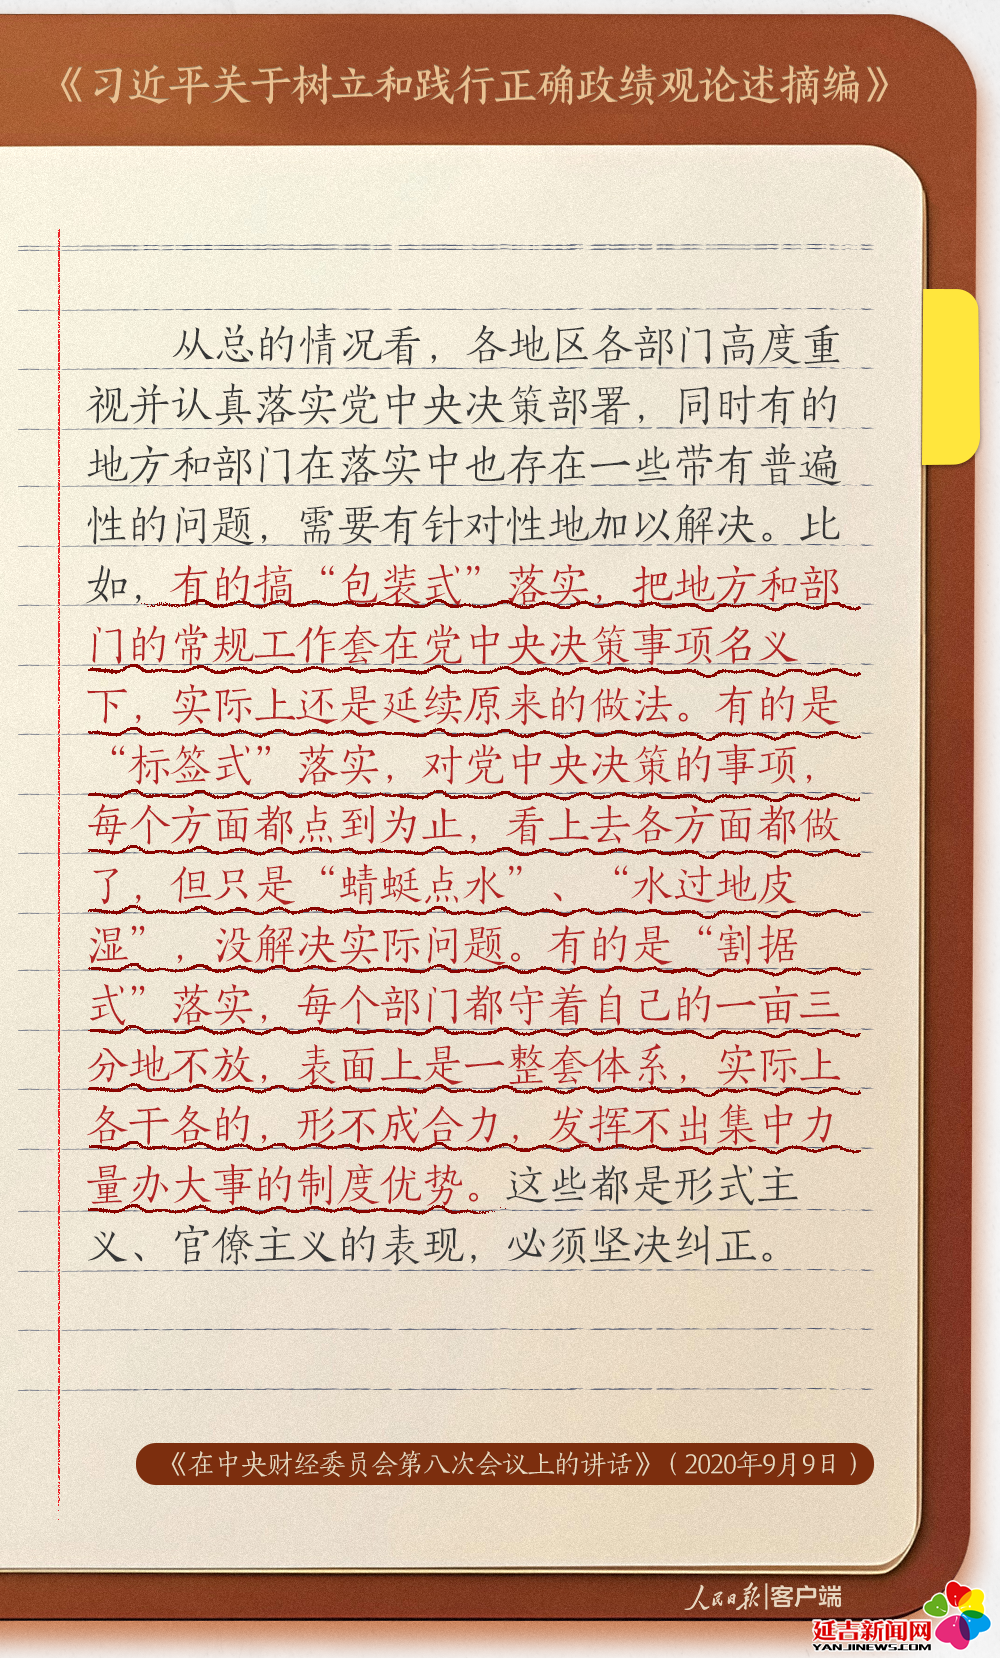 《习近平关于树立和践行正确政绩观论述摘编》
从总的情况看，各地区各部门高度重
视并认真落实党中央决策部署，同时有的
地方和部门在落实中也存在一些带有普遍
性的问题，需要有针对性地加以解决。比
如，有的搞“包装式”落实，把地方和部
门的常规工作套在党中央决策事项名义
下，实际上还是延续原来的做法。有的是
“标签式”落实，对党中央决策的事项，
每个方面都点到为止，看上去各方面都做
了，但只是“蜻蜓点水”、“水过地皮
湿”，没解决实际问题。有的是“割据
式”落实，每个部门都守着自己的一亩三
分地不放，表面上是一整套体系，实际上
各干各的，形不成合力，发挥不出集中力
量办大事的制度优势。这些都是形式主
义、官僚主义的表现，必须坚决纠正。
《在中央财经委员会第八次会议上的讲话》（2020年9月9日）
人民日报|客户端
延吉新闻网
YANJINEWS.COM